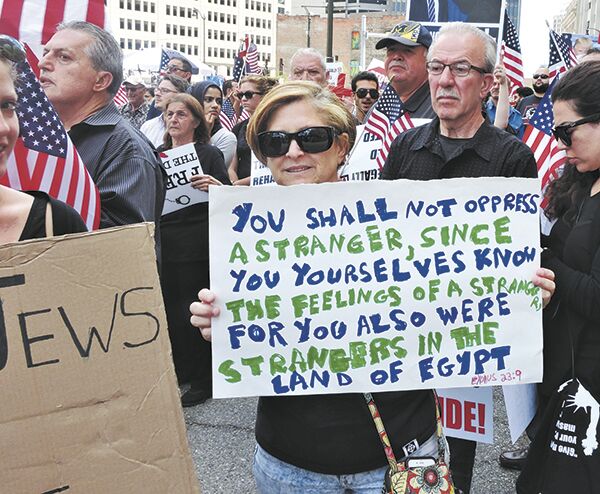 YOU SHALL NOT OPPRESS
A STRANGER, SINCE
YOU YOURSELVES KNOW
THE FEELINGS OF A STRANGER
FOR YOU ALSO WERE
STRANGERS IN THE
LAND OF EGYPT
EXODUS 23:9
JEWS
IDE!